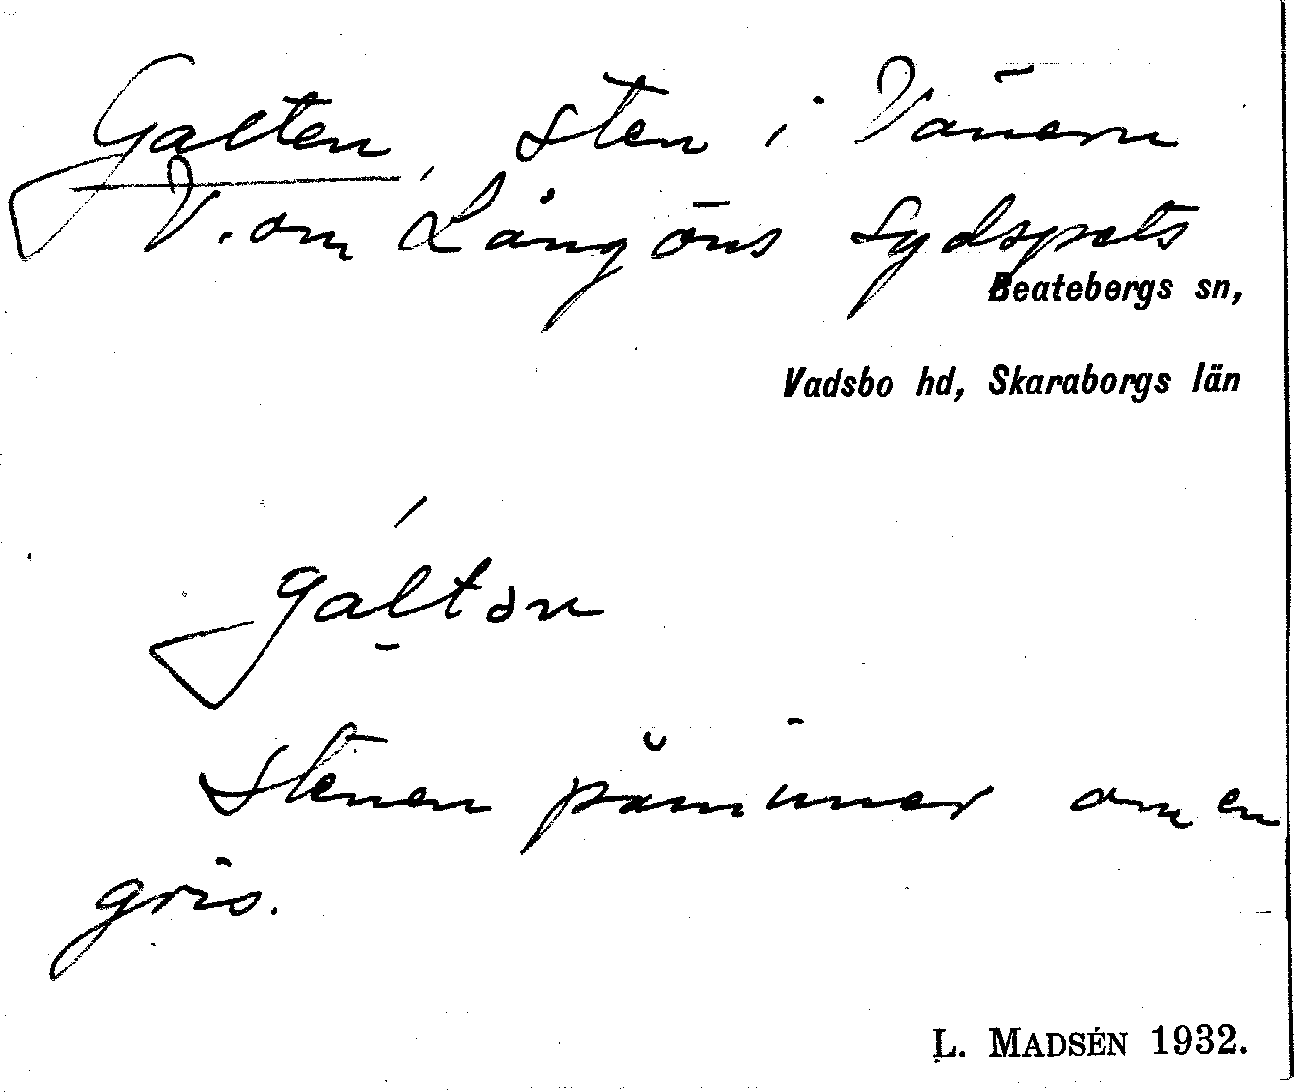 Galten, sten i Vänern
V. om Långöns sydspets
Beatebergs sn,
Vadsbo hd, Skaraborgs län
gál̠tən
Stenen påminner om en
gris.
L. MADSÉN 1932.